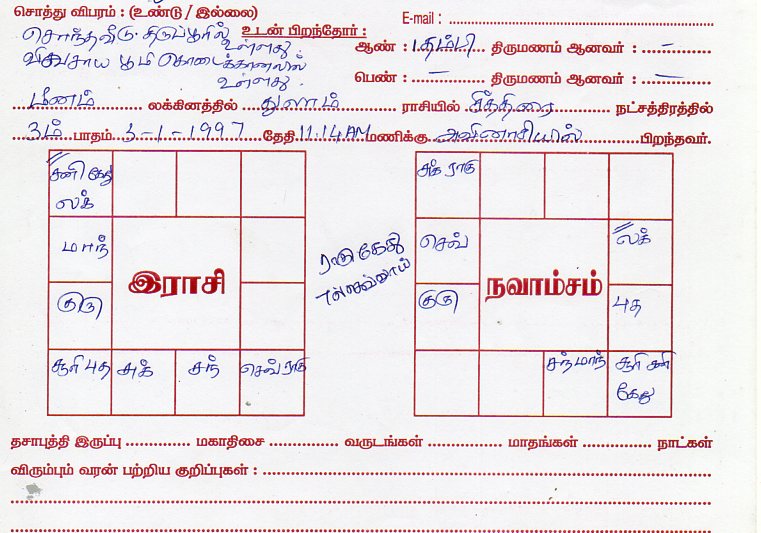 சொத்து விபரம் : (உண்டு / இல்லை)
E-mail :
சொந்தவீடு. திருப்பூரில் உள்ளது. உடன் பிறந்தோர் :
ஆண் : 1.தம்பி திருமணம் ஆனவர் : -
விவசாய பூமி கொடைக்கானலில் உள்ளது.
பெண் : - திருமணம் ஆனவர் : -
மீனம் லக்கினத்தில் துலாம் ராசியில் சித்திரை நட்சத்திரத்தில்
3ம் பாதம் 3-1-1997 தேதி 11:14 AM மணிக்கு அவினாசியில் பிறந்தவர்.
சனி கேது
லக்
மாந்
குரு
இராசி
சூரி புத சுக் சந் செவ் ராகு
ராகு கேது
சுக் ராகு
செவ் லக்
குரு புத
நவாம்சம்
சந் மாந் சூரி சனி
கேது
தசாபுத்தி இருப்பு மகாதிசை வருடங்கள் மாதங்கள் நாட்கள்
விரும்பும் வரன் பற்றிய குறிப்புகள் :